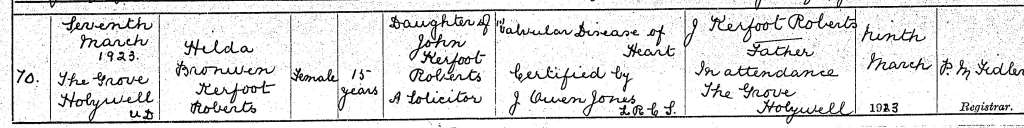 70.
Seventh
March
1923.
The Grove
Holywell
U D
Hilda
Bronwen
Kerfoot
Roberts
Female
15
years
Daughter of
John
Kerfoot
Roberts
A Solicitor
Valvular Disease of
Heart
Certified by
J Owen Jones
L R C S.
J Kerfoot Roberts
Father
In attendance
The Grove
Holywell
Ninth
March
1923
P. M Fidler
Registrar.